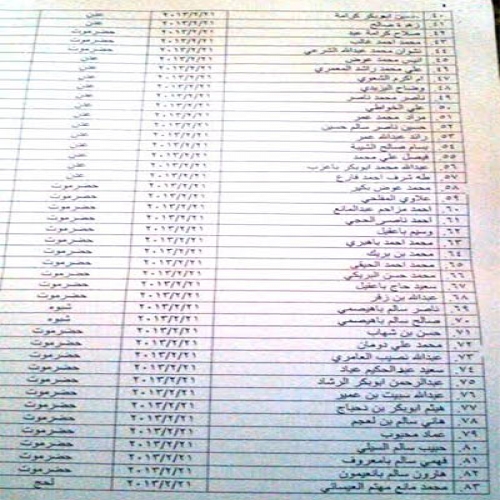 ٤٠. حسين ابوبكر كرامة ٢٠١٣/٢/٢١ عدن
٤١. زهرة صالح ٢٠١٣/٢/٢١ عدن
٤٢. صلاح كرامة عبد ٢٠١٣/٢/٢١ حضرموت
٤٣. محمد احمد غالب ٢٠١٣/٢/٢١ حضرموت
٤٤. نشوان محمد عبدالله الشرعي ٢٠١٣/٢/٢١ حضرموت
٤٥. انيس محمد عوض ٢٠١٣/٢/٢١ عدن
٤٦. علي محمد راشد المعمري ٢٠١٣/٢/٢١ عدن
٤٧. ام اكرم الشعوي ٢٠١٣/٢/٢١ عدن
٤٨. وضاح اليزيدي ٢٠١٣/٢/٢١ عدن
٤٩. ناصر محمد ناصر ٢٠١٣/٢/٢١ عدن
٥٠. علي الخواطي ٢٠١٣/٢/٢١ عدن
٥١. مراد محمد عمر ٢٠١٣/٢/٢١ عدن
٥٢. حسين ناصر سالم حسين ٢٠١٣/٢/٢١ عدن
٥٣. رائد عبدالله عمر ٢٠١٣/٢/٢١ عدن
٥٤. بسام صالح الشيبة ٢٠١٣/٢/٢١ عدن
٥٥. فيصل علي محمد ٢٠١٣/٢/٢١ عدن
٥٦. عبدالله محمد ابوبكر باعزب ٢٠١٣/٢/٢١ عدن
٥٧. طه شرف احمد فارع ٢٠١٣/٢/٢١ عدن
٥٨. محمد عوض بكير ٢٠١٣/٢/٢١ حضرموت
٥٩. علاوي المفلحي ٢٠١٣/٢/٢١ حضرموت
٦٠. احمد مزاحم عبدالمانع ٢٠١٣/٢/٢١ حضرموت
٦١. احمد ناصر الحجي ٢٠١٣/٢/٢١ حضرموت
٦٢. وسيم باعقيل ٢٠١٣/٢/٢١ حضرموت
٦٣. محمد احمد باهبري ٢٠١٣/٢/٢١ حضرموت
٦٤. محمد بن بريك ٢٠١٣/٢/٢١ حضرموت
٦٥. محمد احمد الحيقي ٢٠١٣/٢/٢١ حضرموت
٦٦. محمد حسن البريكي ٢٠١٣/٢/٢١ حضرموت
٦٧. سعيد حاج باعقيل ٢٠١٣/٢/٢١ حضرموت
٦٨. عبدالله بن زقر ٢٠١٣/٢/٢١ حضرموت
٦٩. ناصر سالم باهيصمي ٢٠١٣/٢/٢١ شبوه
٧٠. صالح سالم باهيصمي ٢٠١٣/٢/٢١ شبوه
٧١. حسن بن شهاب ٢٠١٣/٢/٢١ حضرموت
٧٢. محمد علي دومان ٢٠١٣/٢/٢١ حضرموت
٧٣. عبدالله نصيب العامري ٢٠١٣/٢/٢١ حضرموت
٧٤. سعيد عبدالحكيم عباد ٢٠١٣/٢/٢١ حضرموت
٧٥. عبدالرحمن ابوبكر الرشاد ٢٠١٣/٢/٢١ حضرموت
٧٦. عبدالله سبيت بن عمير ٢٠١٣/٢/٢١ حضرموت
٧٧. هيثم ابوبكر بن نحباج ٢٠١٣/٢/٢١ حضرموت
٧٨. هاني سالم بن لعجم ٢٠١٣/٢/٢١ حضرموت
٧٩. عماد محبوب ٢٠١٣/٢/٢١ حضرموت
٨٠. حبيب سالم السيلي ٢٠١٣/٢/٢١ حضرموت
٨١. فهمي سالم بامعروف ٢٠١٣/٢/٢١ حضرموت
٨٢. هارون سالم بانعيمون ٢٠١٣/٢/٢١ حضرموت
٨٣. محمد مانع مهثم العيسائي ٢٠١٣/٢/٢١ لحج